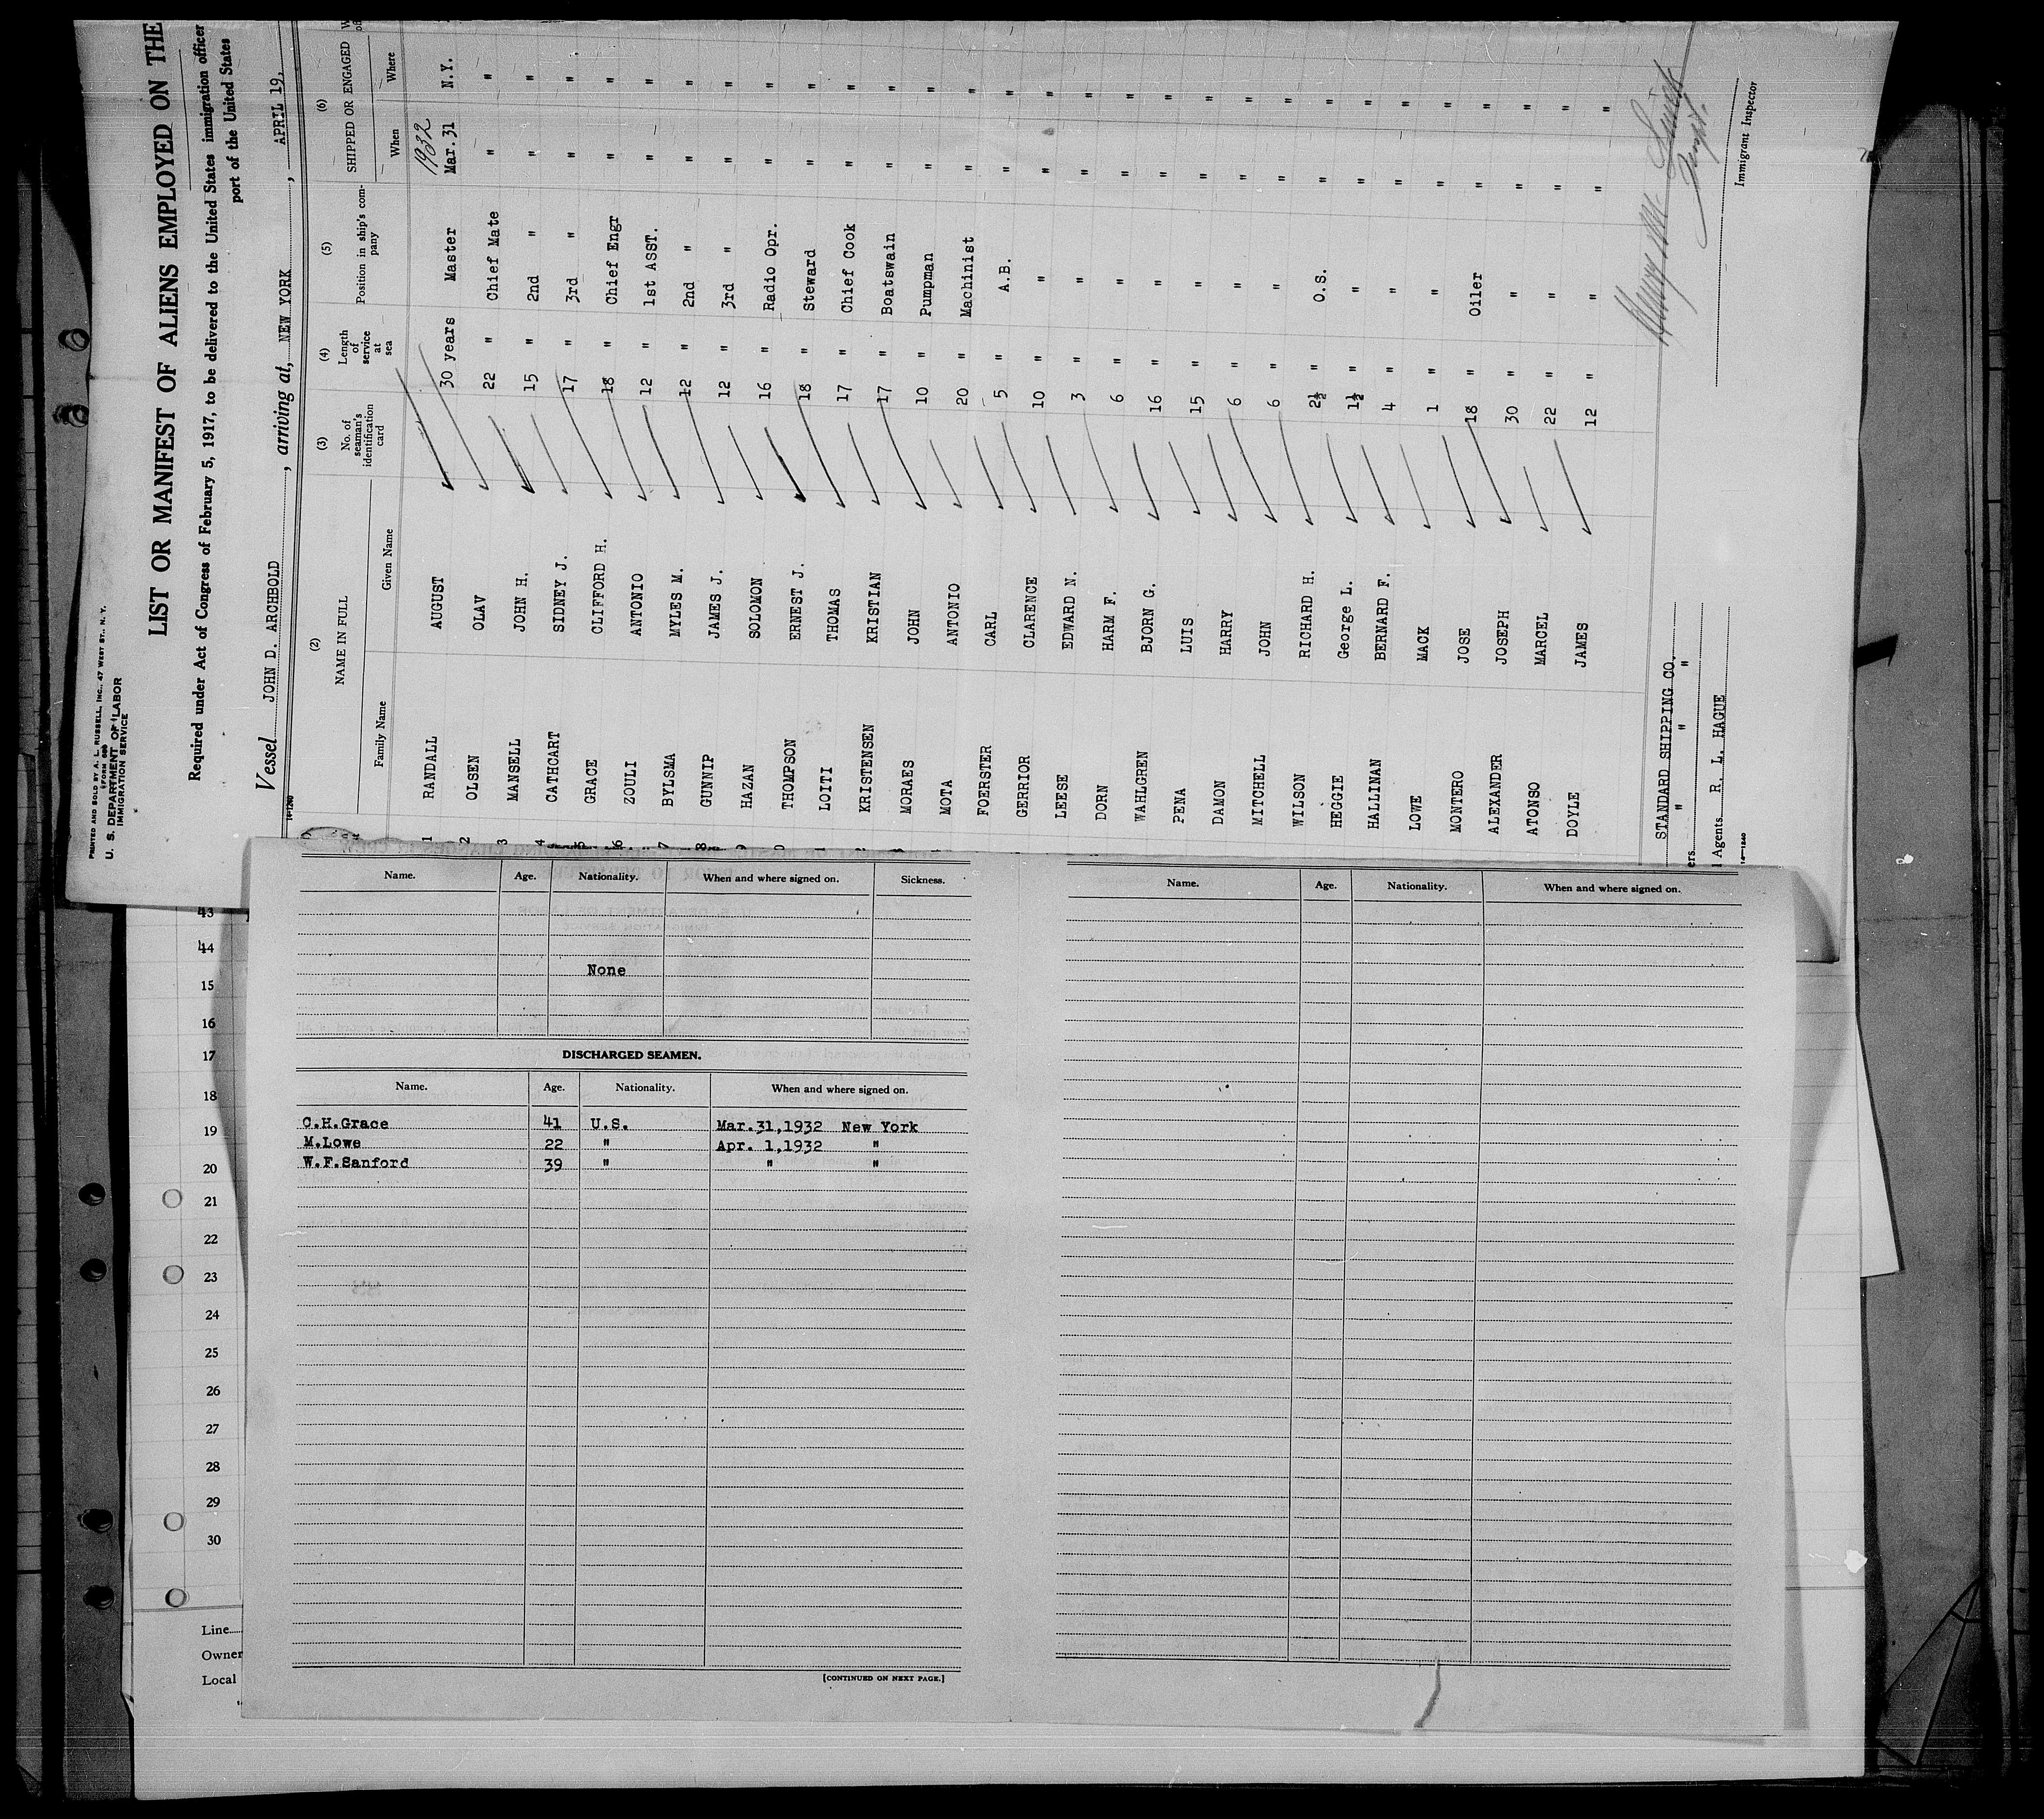 PRINTED AND SOLD BY A. L. RUSSELL, INC., 47 WEST ST., N. Y.
FORM 689
U. S. DEPARTMENT OF LABOR
IMMIGRATION SERVICE
LIST OR MANIFEST OF ALIENS EMPLOYED ON THE
Required under Act of Congress of February 5, 1917, to be delivered to the United States immigration officer
port of the United States
Vessel JOHN D. ARCHBOLD, arriving at, NEW YORK, APRIL 19,
14-1240
(2) (3) (4) (5) (6)
NAME IN FULL No. of seaman's identification card Length of service at sea Position in ship's company SHIPPED OR ENGAGED
Family Name Given Name When Where
1932
1 RANDALL AUGUST 30 years Master Mar. 31 N.Y.
2 OLSEN OLAV 22 " Chief Mate " "
3 MANSELL JOHN H. 15 " 2nd " " "
4 CATHCART SIDNEY J. 17 " 3rd " " "
5 GRACE CLIFFORD H. 18 " Chief Engr " "
6 ZOULI ANTONIO 12 " 1st ASST. " "
7 BYLSMA MYLES M. 12 " 2nd " " "
8 GUNNIP JAMES J. 12 " 3rd " " "
9 HAZAN SOLOMON 16 " Radio Opr. " "
0 THOMPSON ERNEST J. 18 " Steward " "
1 LOITI THOMAS 17 " Chief Cook " "
2 KRISTENSEN KRISTIAN 17 " Boatswain " "
3 MORAES JOHN 10 " Pumpman " "
MOTA ANTONIO 20 " Machinist " "
FOERSTER CARL 5 " A.B. " "
GERRIOR CLARENCE 10 " " " "
LEESE EDWARD N. 3 " " " "
DORN HARM F. 6 " " " "
WAHLGREN BJORN G. 16 " " " "
PENA LUIS 15 " " " "
DAMON HARRY 6 " " " "
MITCHELL JOHN 6 " " " "
WILSON RICHARD H. 2½ " O.S. " "
HEGGIE George L. 1½ " " " "
HALLINAN BERNARD F. 4 " " " "
LOWE MACK 1 " " " "
MONTERO JOSE 18 " Oiler " "
ALEXANDER JOSEPH 30 " " " "
ATONSO MARCEL 22 " " " "
DOYLE JAMES 12 " " " "
STANDARD SHIPPING CO.
ers " " "
l Agents R. L. HAGUE
14-1240
Henry M.
Immigrant Inspector
Name. Age. Nationality. When and where signed on. Sickness.
None
DISCHARGED SEAMEN.
Name. Age. Nationality. When and where signed on.
C.H.Grace 41 U.S. Mar.31,1932 New York
M.Lowe 22 " Apr. 1,1932 "
W.F.Sanford 39 " " "
[CONTINUED ON NEXT PAGE.]
Name. Age. Nationality. When and where signed on.
15
16
17
18
19
20
21
22
23
24
25
26
27
28
29
30
Line
Owner
Local